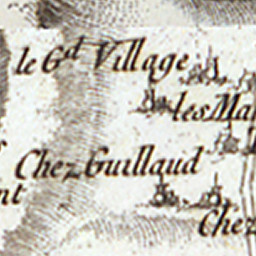 le Gd Village
les Ma
Chez Guillaud
nt
Chez